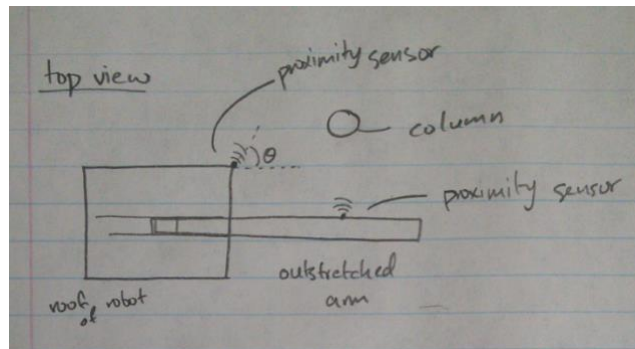 top view
proximity sensor
column
θ
proximity sensor
outstretched
arm
roof
of robot